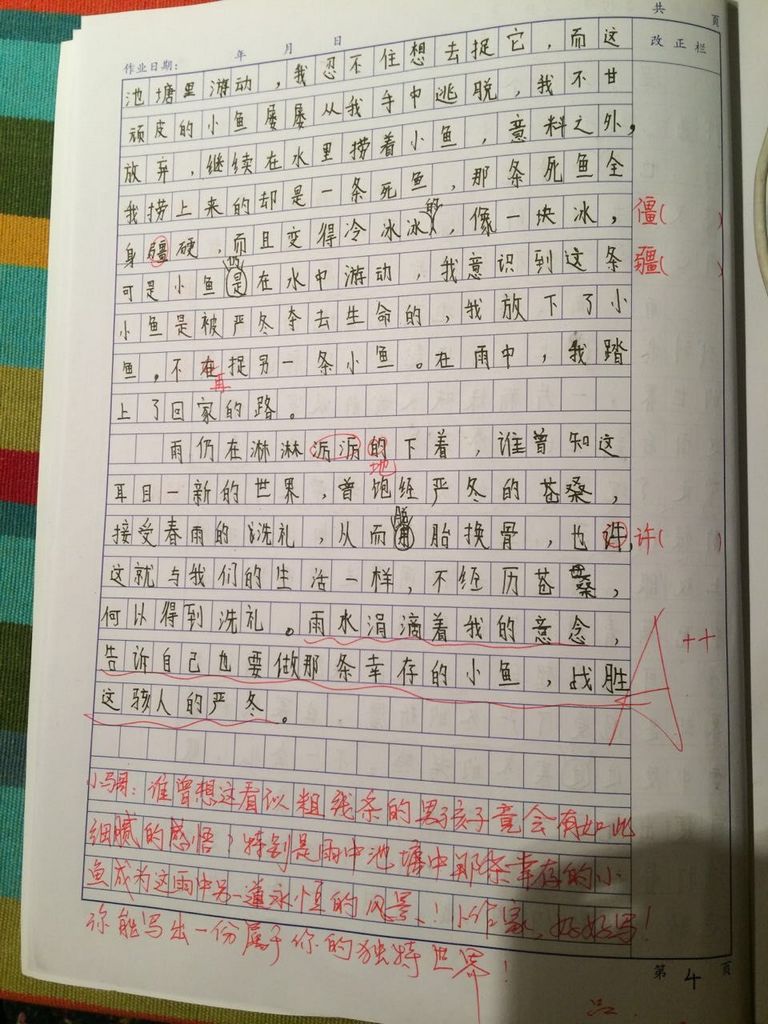 共 页
作业日期： 年 月 日
改正栏
池塘里游动，我忍不住想去捉它，而这
顽皮的小鱼屡屡从我手中逃脱，我不甘
放弃，继续在水里捞着小鱼，意料之外，
我捞上来的却是一条死鱼，那条死鱼全
身疆硬，而且变得冷冰冰的，像一块冰，
僵（ ）
可是小鱼仍是在水中游动，我意识到这条
疆（ ）
小鱼是被严冬夺去生命的，我放下了小
鱼。不在捉另一条小鱼。在雨中，我踏
再
上了回家的路。
雨仍在淋淋沥沥的下着，谁曾知这
地
耳目一新的世界，曾饱经严冬的苍桑，
接受春雨的洗礼，从而脱胎换骨，也许，
许（ ）
这就与我们的生活一样，不经历苍桑，
何以得到洗礼。雨水涓滴着我的意念，
A++
告诉自己也要做那条幸存的小鱼，战胜
这骇人的严冬。
谁曾想这看似粗线条的男孩子竟会有如此
细腻的感悟？特别是雨中池塘中那条幸存的小
鱼成为这雨中另一道永恒的风景！小作家，好好写！
你能写出一份属于你的独特世界！
第 4 页